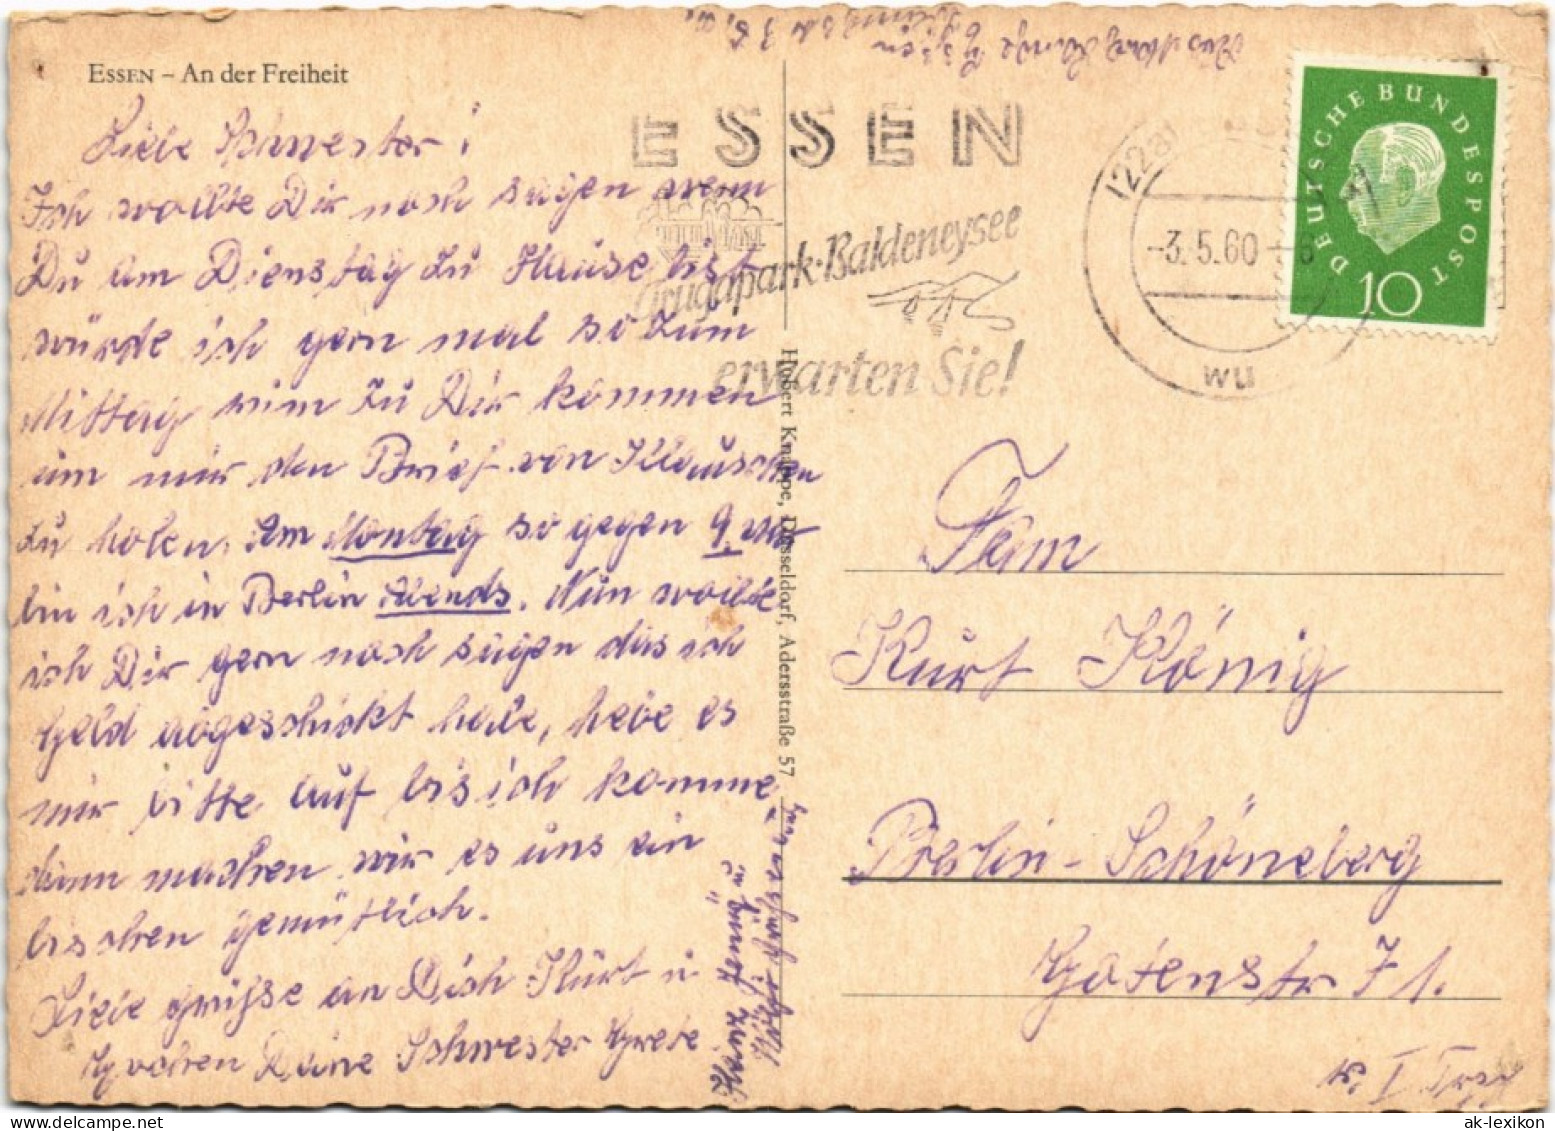 ESSEN – An der Freiheit
Liebe Schwester!
Ich wollte Dir noch sagen wenn
Du am Dienstag zu Hause bist
würde ich gern mal so zum
Mittag rum zu Dir kommen
um mir den Brief von Kläuschen
zu holen. Am Montag so gegen 9 Uhr
bin ich in Berlin Abends. Nun wollte
ich Dir gern noch sagen das ich
Geld abgeschickt habe, hebe es
mir bitte auf bis ich komme,
dann machen wir es uns ein
bisschen gemütlich.
Liebe Grüße an Dich Kurt u
Deine Schwester Grete
Hubert Knappe, Düsseldorf, Adersstraße 57
ESSEN
Grugapark·Baldeneysee
erwarten Sie!
22a
-3.5.60
wu
DEUTSCHE BUNDESPOST
10
Fam
Kurt König
Berlin-Schöneberg
Gotenstr 71.
I
ak-lexikon.com